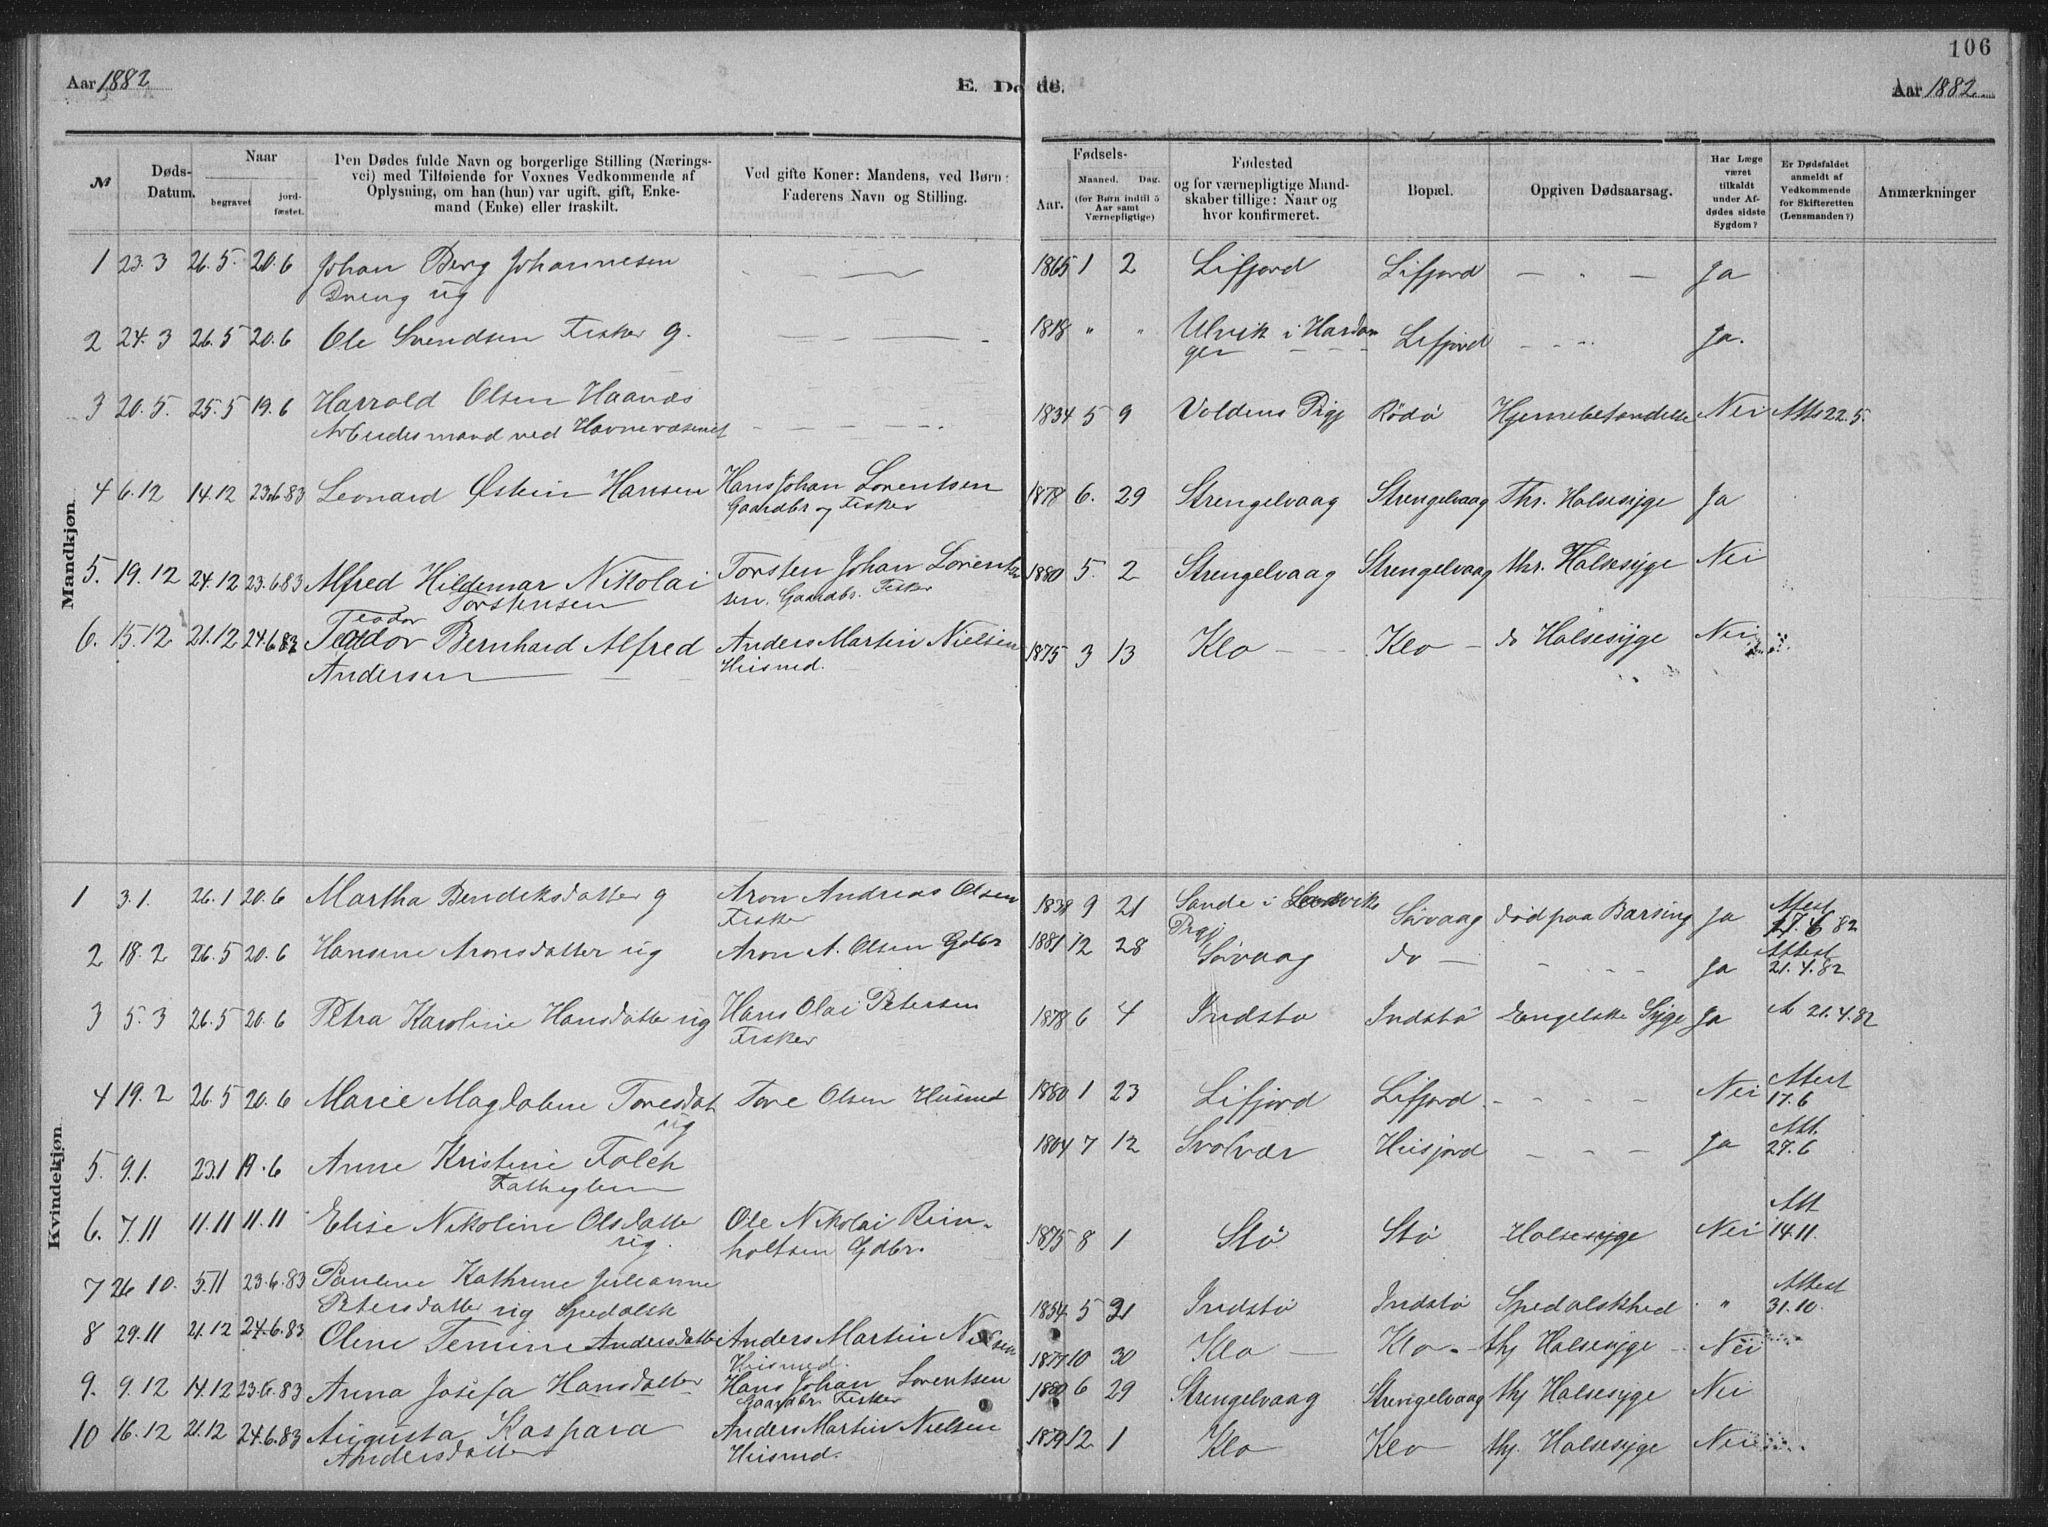 106
Aar 1882
E. Døde.
Aar 1882
Mandkjøn
№
Døds-Datum.
Naar
begravet
jordfæstet.
Den Dødes fulde Navn og borgerlige Stilling (Næringsvei) med Tilføiende for Voxnes Vedkommende af Oplysning, om han (hun) var ugift, gift, Enkemand (Enke) eller fraskilt.
Ved gifte Koner: Mandens, ved Børn: Faderens Navn og Stilling.
Fødsels-
Aar.
Maaned. Dag.
(for Børn indtil 5 Aar samt Værnepligtige)
Fødested og for værnepligtige Mandskaber tillige: Naar og hvor konfirmeret.
Bopæl.
Opgiven Dødsaarsag.
Har Læge været tilkaldt under Afdødes sidste Sygdom?
Er Dødsfaldet anmeldt af Vedkommende for Skifteretten (Lensmanden?)
Anmærkninger
1 23.3 26.5. 20.6 Johan Berg Johannesen 1865 1 2 Lifjord Lifjord — " — Ja
Dreng ug
2 24.3 26.5 20.6 Ole Svendsen Fisker g. 1818 " " Ulvik i Hardan Lifjord Ja.
ger
3 20.5. 25.5 19.6 Harrold Olsen Haanæs 1834 5 9 Voldens Prgj Rödö Hjernebetændelse Nei Atts 22.5.
Arbeidesmand ved Havnevæsenet
4 6.12 14.12 23.6.83 Leonard Østein Hansen Hans Johan Lorentsen 1878 6. 29 Strengelvaag Strengelvaag Thr. Halsesyge Ja
Gaardbr og Fisker
5. 19.12 24.12 23.6.83 Alfred Hildemar Nikolai Torsten Johan Lorent 1880 5. 2 Strengelvaag Strengelvaag thr. Halsesyge Nei
Torstensen sen. Gaardbr. Fisker
Teodor
6. 15.12 21.12 24.6.83 Teodor Bernhard Alfred Anders Martin Nielsen 1875 3 13 Klo Klo do Halsesyge Nei
Andersen Husmd.
Kvindekjøn
1 3.1. 26.1 20.6 Martha Bendiksdatter g Aron Andreas Olsen 1838 9 21 Sande i Sørvaag død paa Barseng Ja Attest
Fisker Prgj 82
2 18.2 26.5 20.6 Hansine Aronsdatter ug Aron A. Olsen Gdbr 1881 12 28 Sørvaag do — Ja Attest
21.4.82
3 5.3 26.5 20.6 Petra Karoline Hansdatter ug Hans Olai Petersen 1878 6 4 Indstø Indstö Engelske Syge Ja A 21.4.82
Fisker
4 19.2 26.5 20.6 Marie Magdalene Toresdat Tore Olsen Husmd 1880 1 23 Lifjord Lifjord Nei Attest
ug 17.6
5. 9.1. 23.1 19.6 Anne Kristine Falch 1804 7 12 Svolvær Husjord Ja Att.
27.6
6. 7.11 11.11 11.11 Elise Nikoline Olsdatter Ole Nikolai Rein- 1875 8 1 Stö Stö Halsesyge Nei Att
ug. holtsen Gdbr. 14.11.
7 26 10. 5.11 23.6.83 Pauline Kathrine Julianne 1854 5 31 Indstö Indstö Spedalskhed " Attest
Petersdatter ug Spedalsk 31.10.
8 29.11 21.12 24.6.83 Oline Temine Andersdatter Anders Martin Nielsen 1877 10 30 Klo Klo thj Halsesyge Nei
Husmd.
9. 9.12 14.12 23.6.83 Anna Josefa Hansdatter Hans Johan Lorentsen 1880 6 29 Strengelvaag Strengelvaag thj Halsesyge Nei
Gaardbr. Fisker
10 16.12 21.12 24.6.83 Augusta Kaspara Anders Martin Nielsen 1879 12 1 Klo Klo thj. Halsesyge Nei
Andersdatter Husmd.